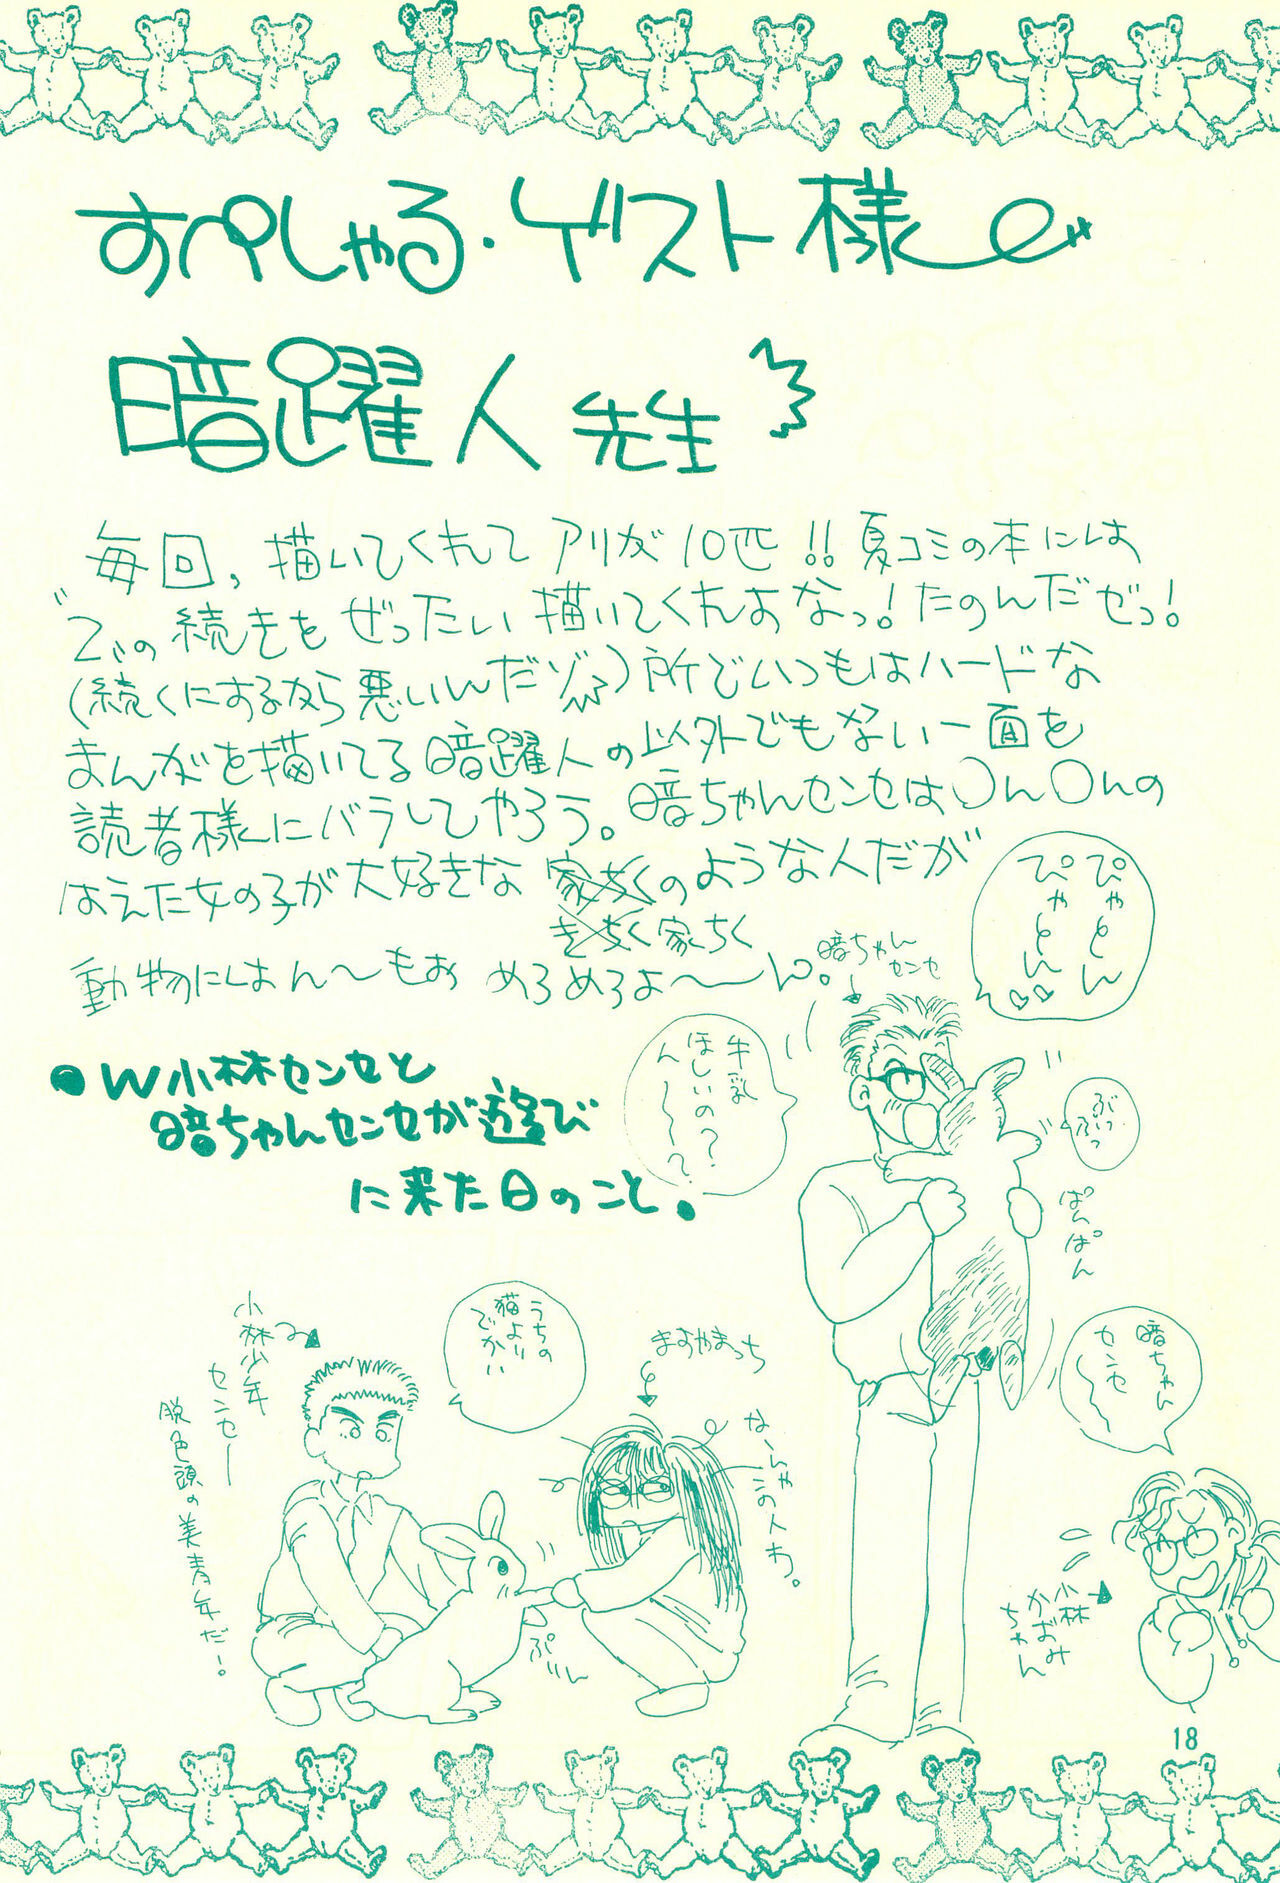 すぺしゃる・ゲスト様
暗躍人 先生
毎回,描いてくれて アリが10匹!!夏コミの本には
"2"の続きを ぜったい描いてくれよなっ!たのんだぜっ!
(続くにするなら悪いんだゾ)所でいつもはハードな
まんがを描いてる暗躍人の以外でもない一面を
読者様にバラしてやろう。暗ちゃんセンセは○ん○んの
はえた女の子が大好きな 家ちくのような人だが
きちく家ちく
動物にはん〜もお めろめろよ〜ん。
暗ちゃん
センセ
ぴゃとん
ぴゃとん♡♡
●W小林センセと
暗ちゃんセンセが遊び
に来た日のこと.
牛乳
ほしいの?
ん〜〜?
ぶっ
ぶっ
ぱんぱん
暗ちゃん
センセ〜
小林
かおみ
ちゃん
小林少年
センセー
脱色頭の美青年だ!
うちの
猫より
でかい
ますやまっち
な〜んや
この人わ。
ぷい〜ん
18